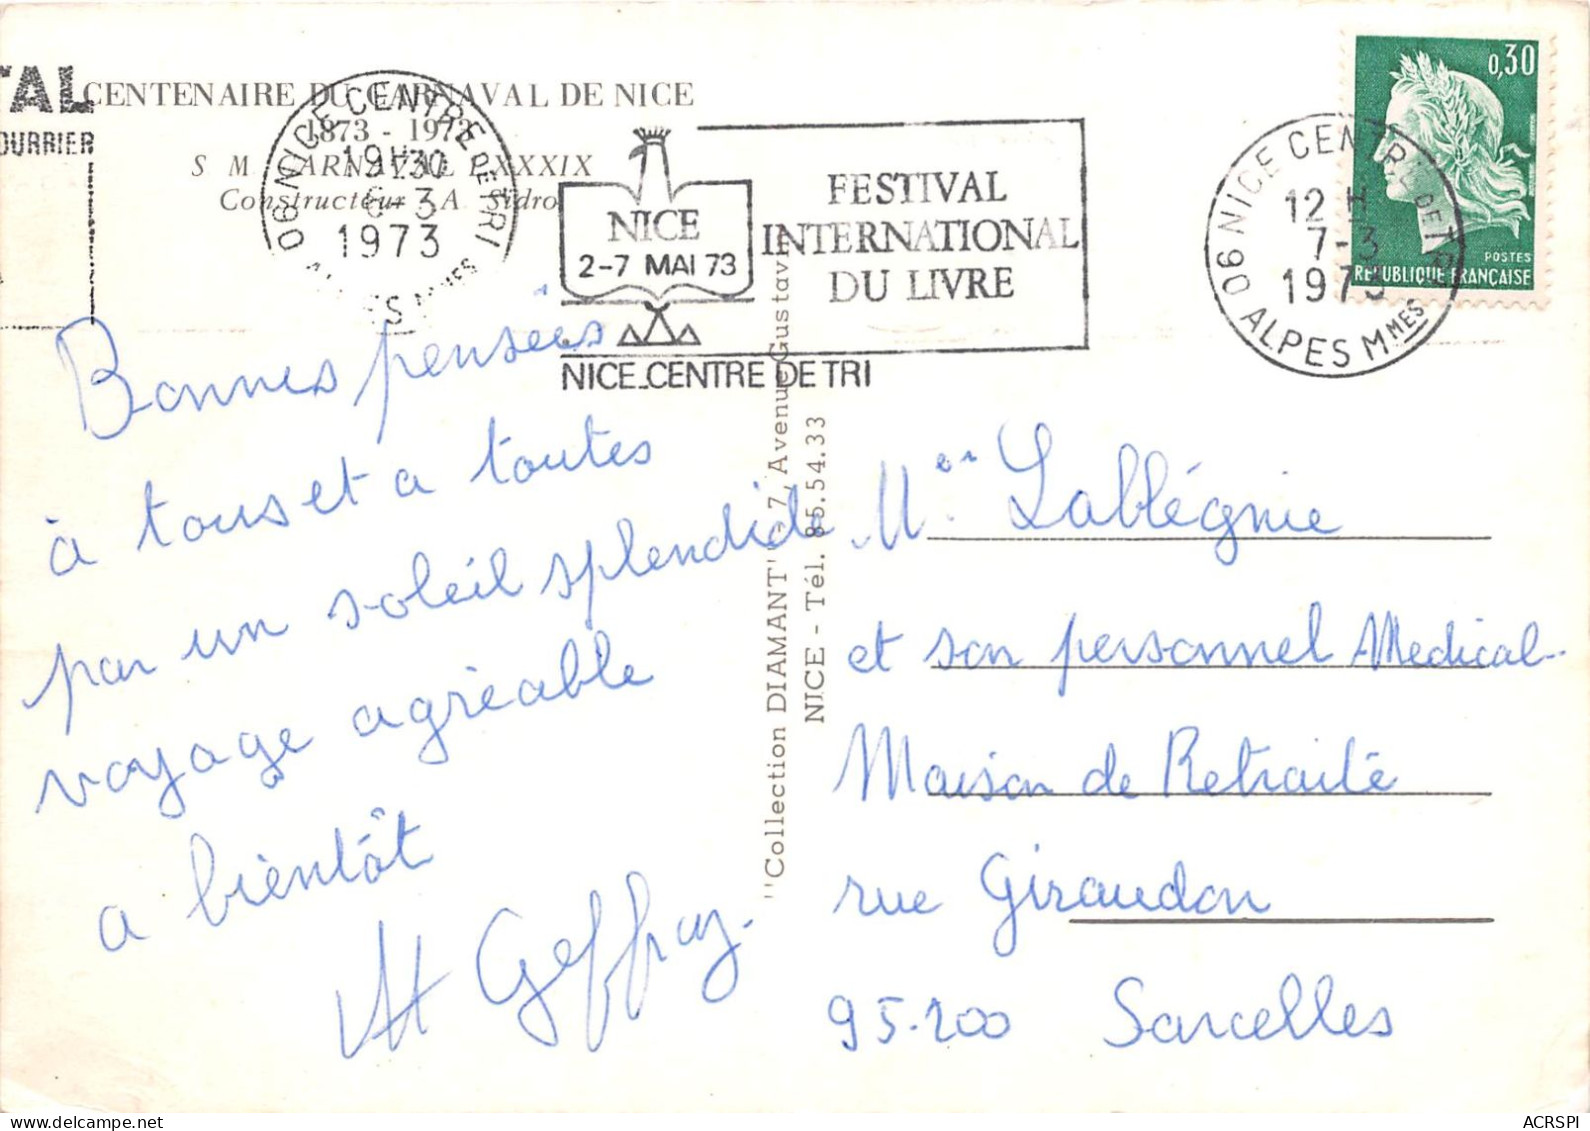 TAL
OURRIER
CENTENAIRE DU CARNAVAL DE NICE
1873 - 1973
S M CARNAVAL LXXXIX
Constructeur A Sidro
06 NICE CENTRE DE TRI
19H30
6-3
1973
NICE
2-7 MAI 73
FESTIVAL
INTERNATIONAL
DU LIVRE
NICE_CENTRE DE TRI
06 NICE CENTRE DE TRI
12 H
7-3
1973
ALPES MMES
0,30
POSTES
REPUBLIQUE FRANÇAISE
Bonnes pensees
à tous et a toutes
par un soleil splendide
voyage agréable
a bientôt
Geffray.
"Collection DIAMANT" - 7, Avenue Gustave
NICE - Tél. 85.54.33
Lablégnie
et son personnel Medical.
Maison de Retraité
rue Giraudon
95-200 Sarcelles
ACRSPI